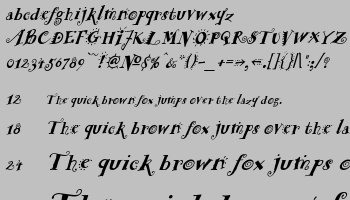 abcdefghijklmnopqrstuvwxyz
ABCDEFGHIJKLMNOPQRSTUVWX
0123456789
12 The quick brown fox jumps over the lazy dog.
18 The quick brown fox jumps over the la
24 The quick brown fox jumps o